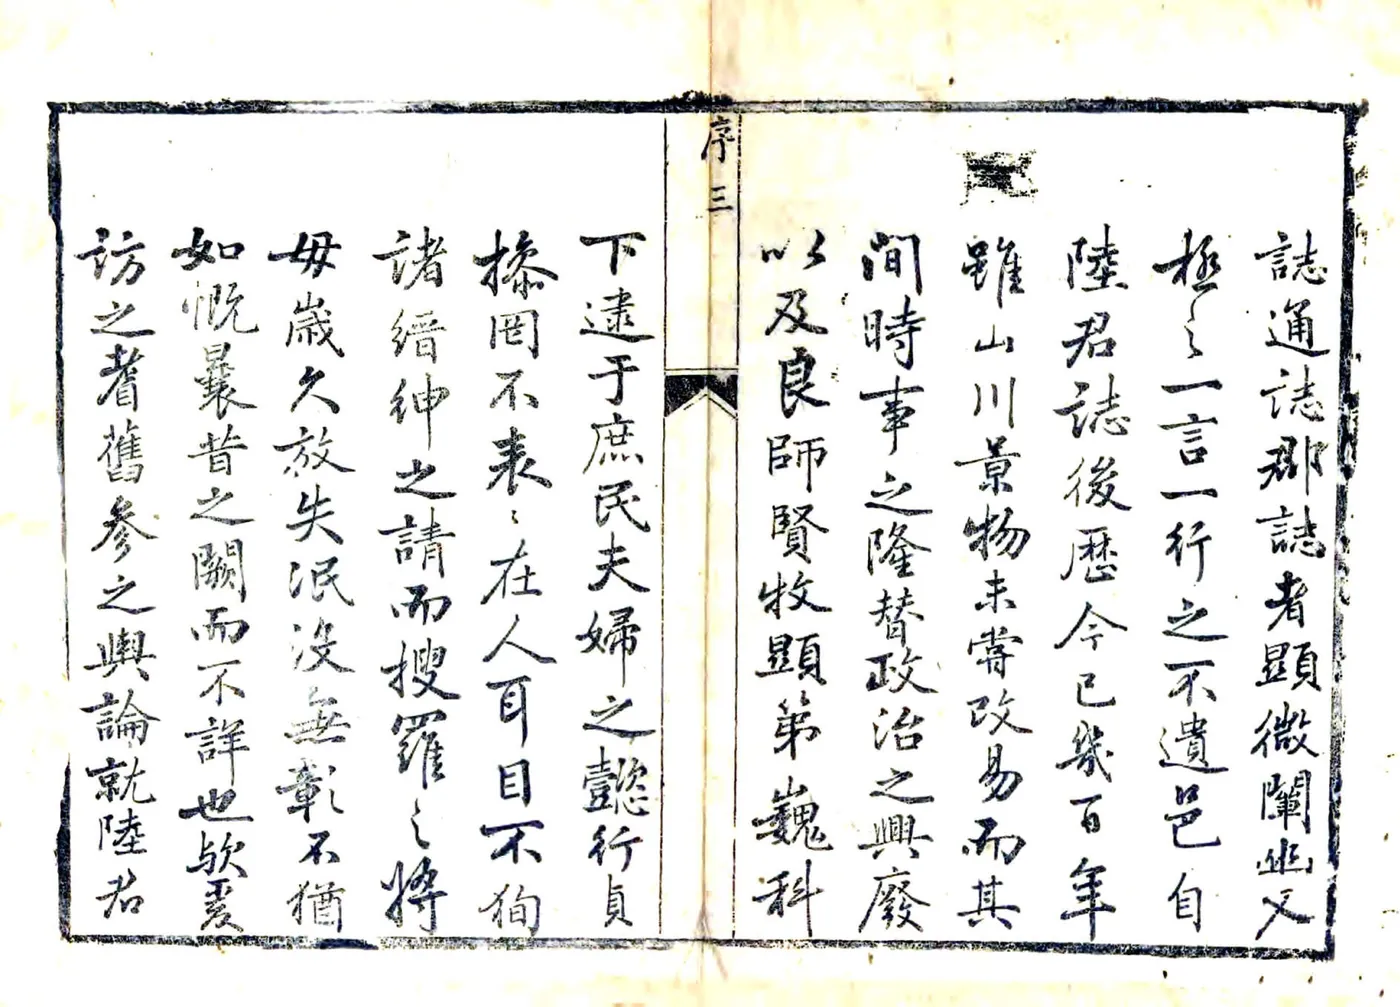 誌通誌郡誌者顯微闡幽又
極之一言一行之不遺邑自
陸君誌後歷今已幾百年
雖山川景物未嘗改易而其
間時事之隆替政治之興廢
以及良師賢牧顯第巍科
序三
下逮于庶民夫婦之懿行貞
操罔不表〻在人耳目不徇
諸縉紳之請而搜羅之將
毋歲久放失泯沒無彰不猶
如慨曩昔之闕而不詳也欤爰
訪之耆舊參之輿論就陸君